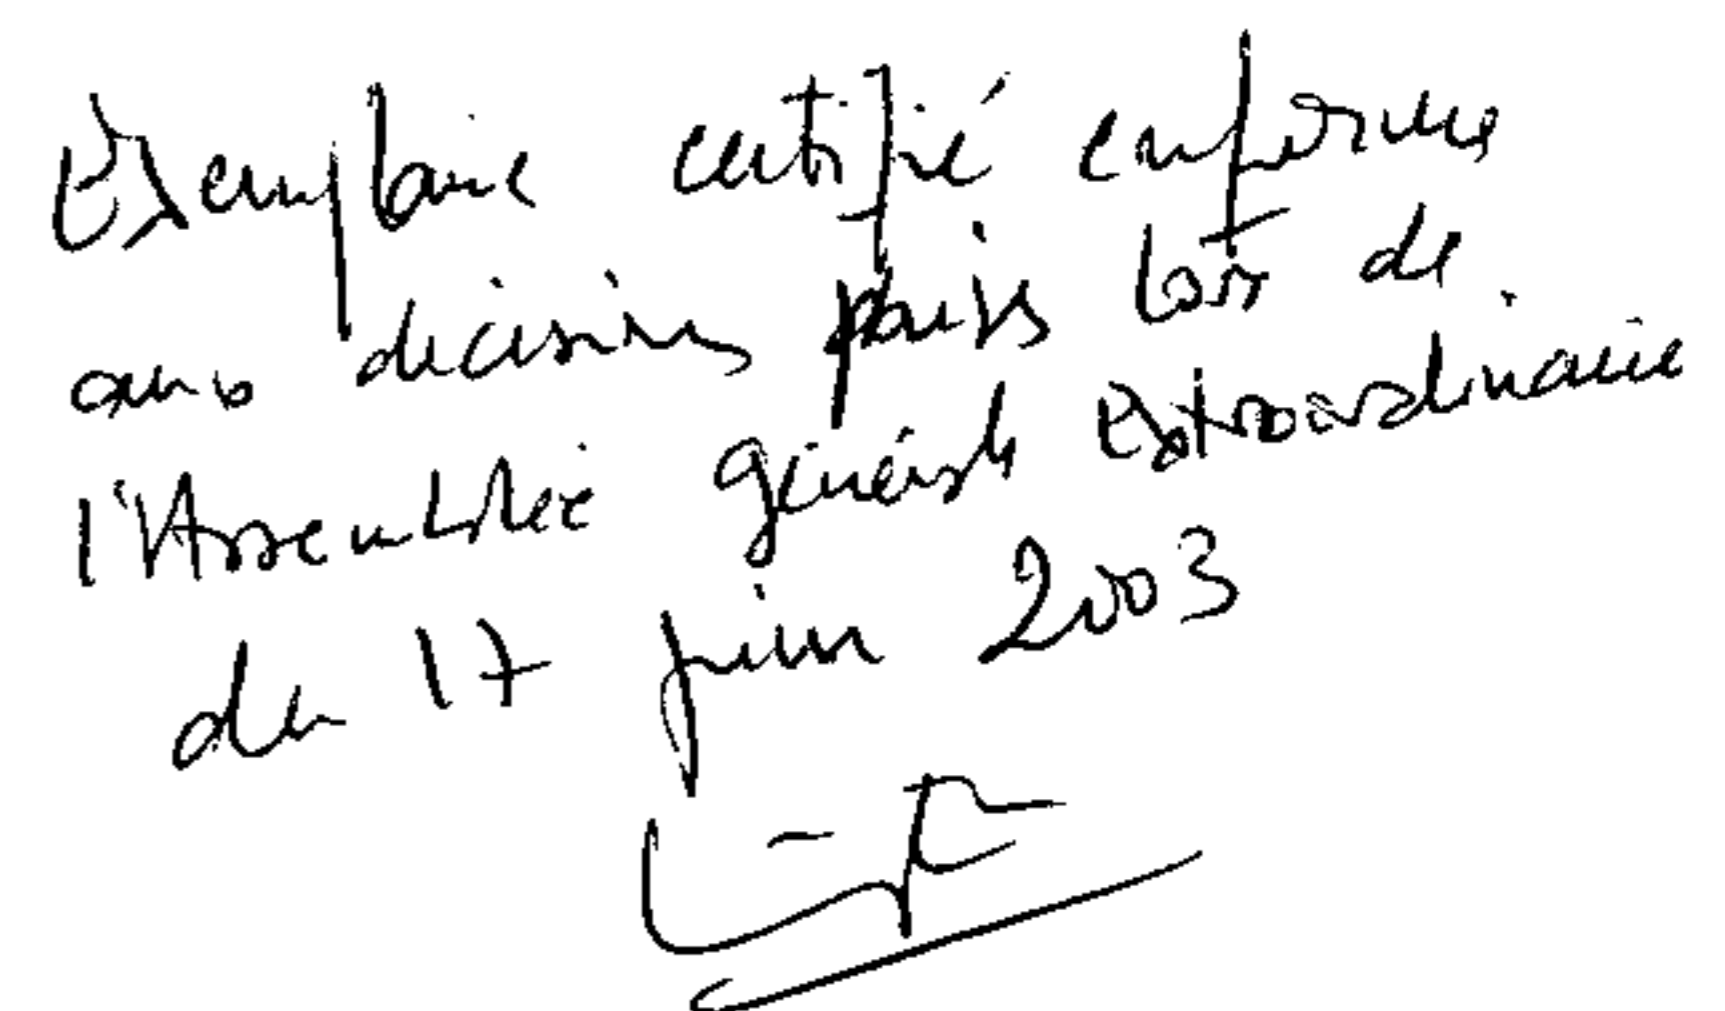 Exemplaire certifié conforme
aux décisions prises lors de
l'Assemblée générale Extraordinaire
du 17 juin 2003